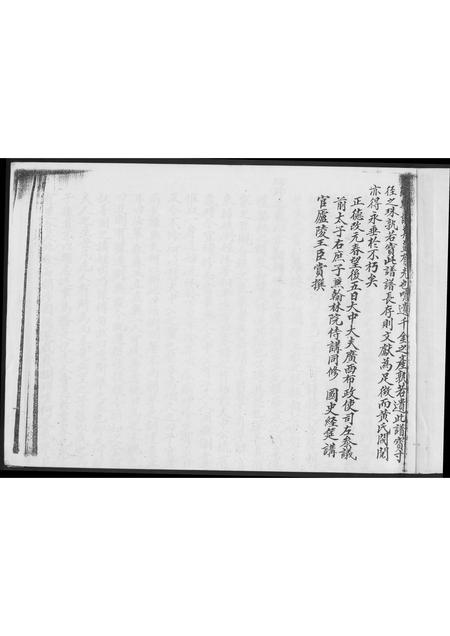 先也噫遺千金之產孰若遺此譜寶寸
徑之珠孰若寶此譜譜長存則文獻為足徵而黃氏閥閱
亦得永垂於不朽矣
正德改元春望後五日大中大夫廣西布政使司左參議
前太子右庶子兼翰林院侍講同修 國史經筵講
官廬陵王臣賞撰